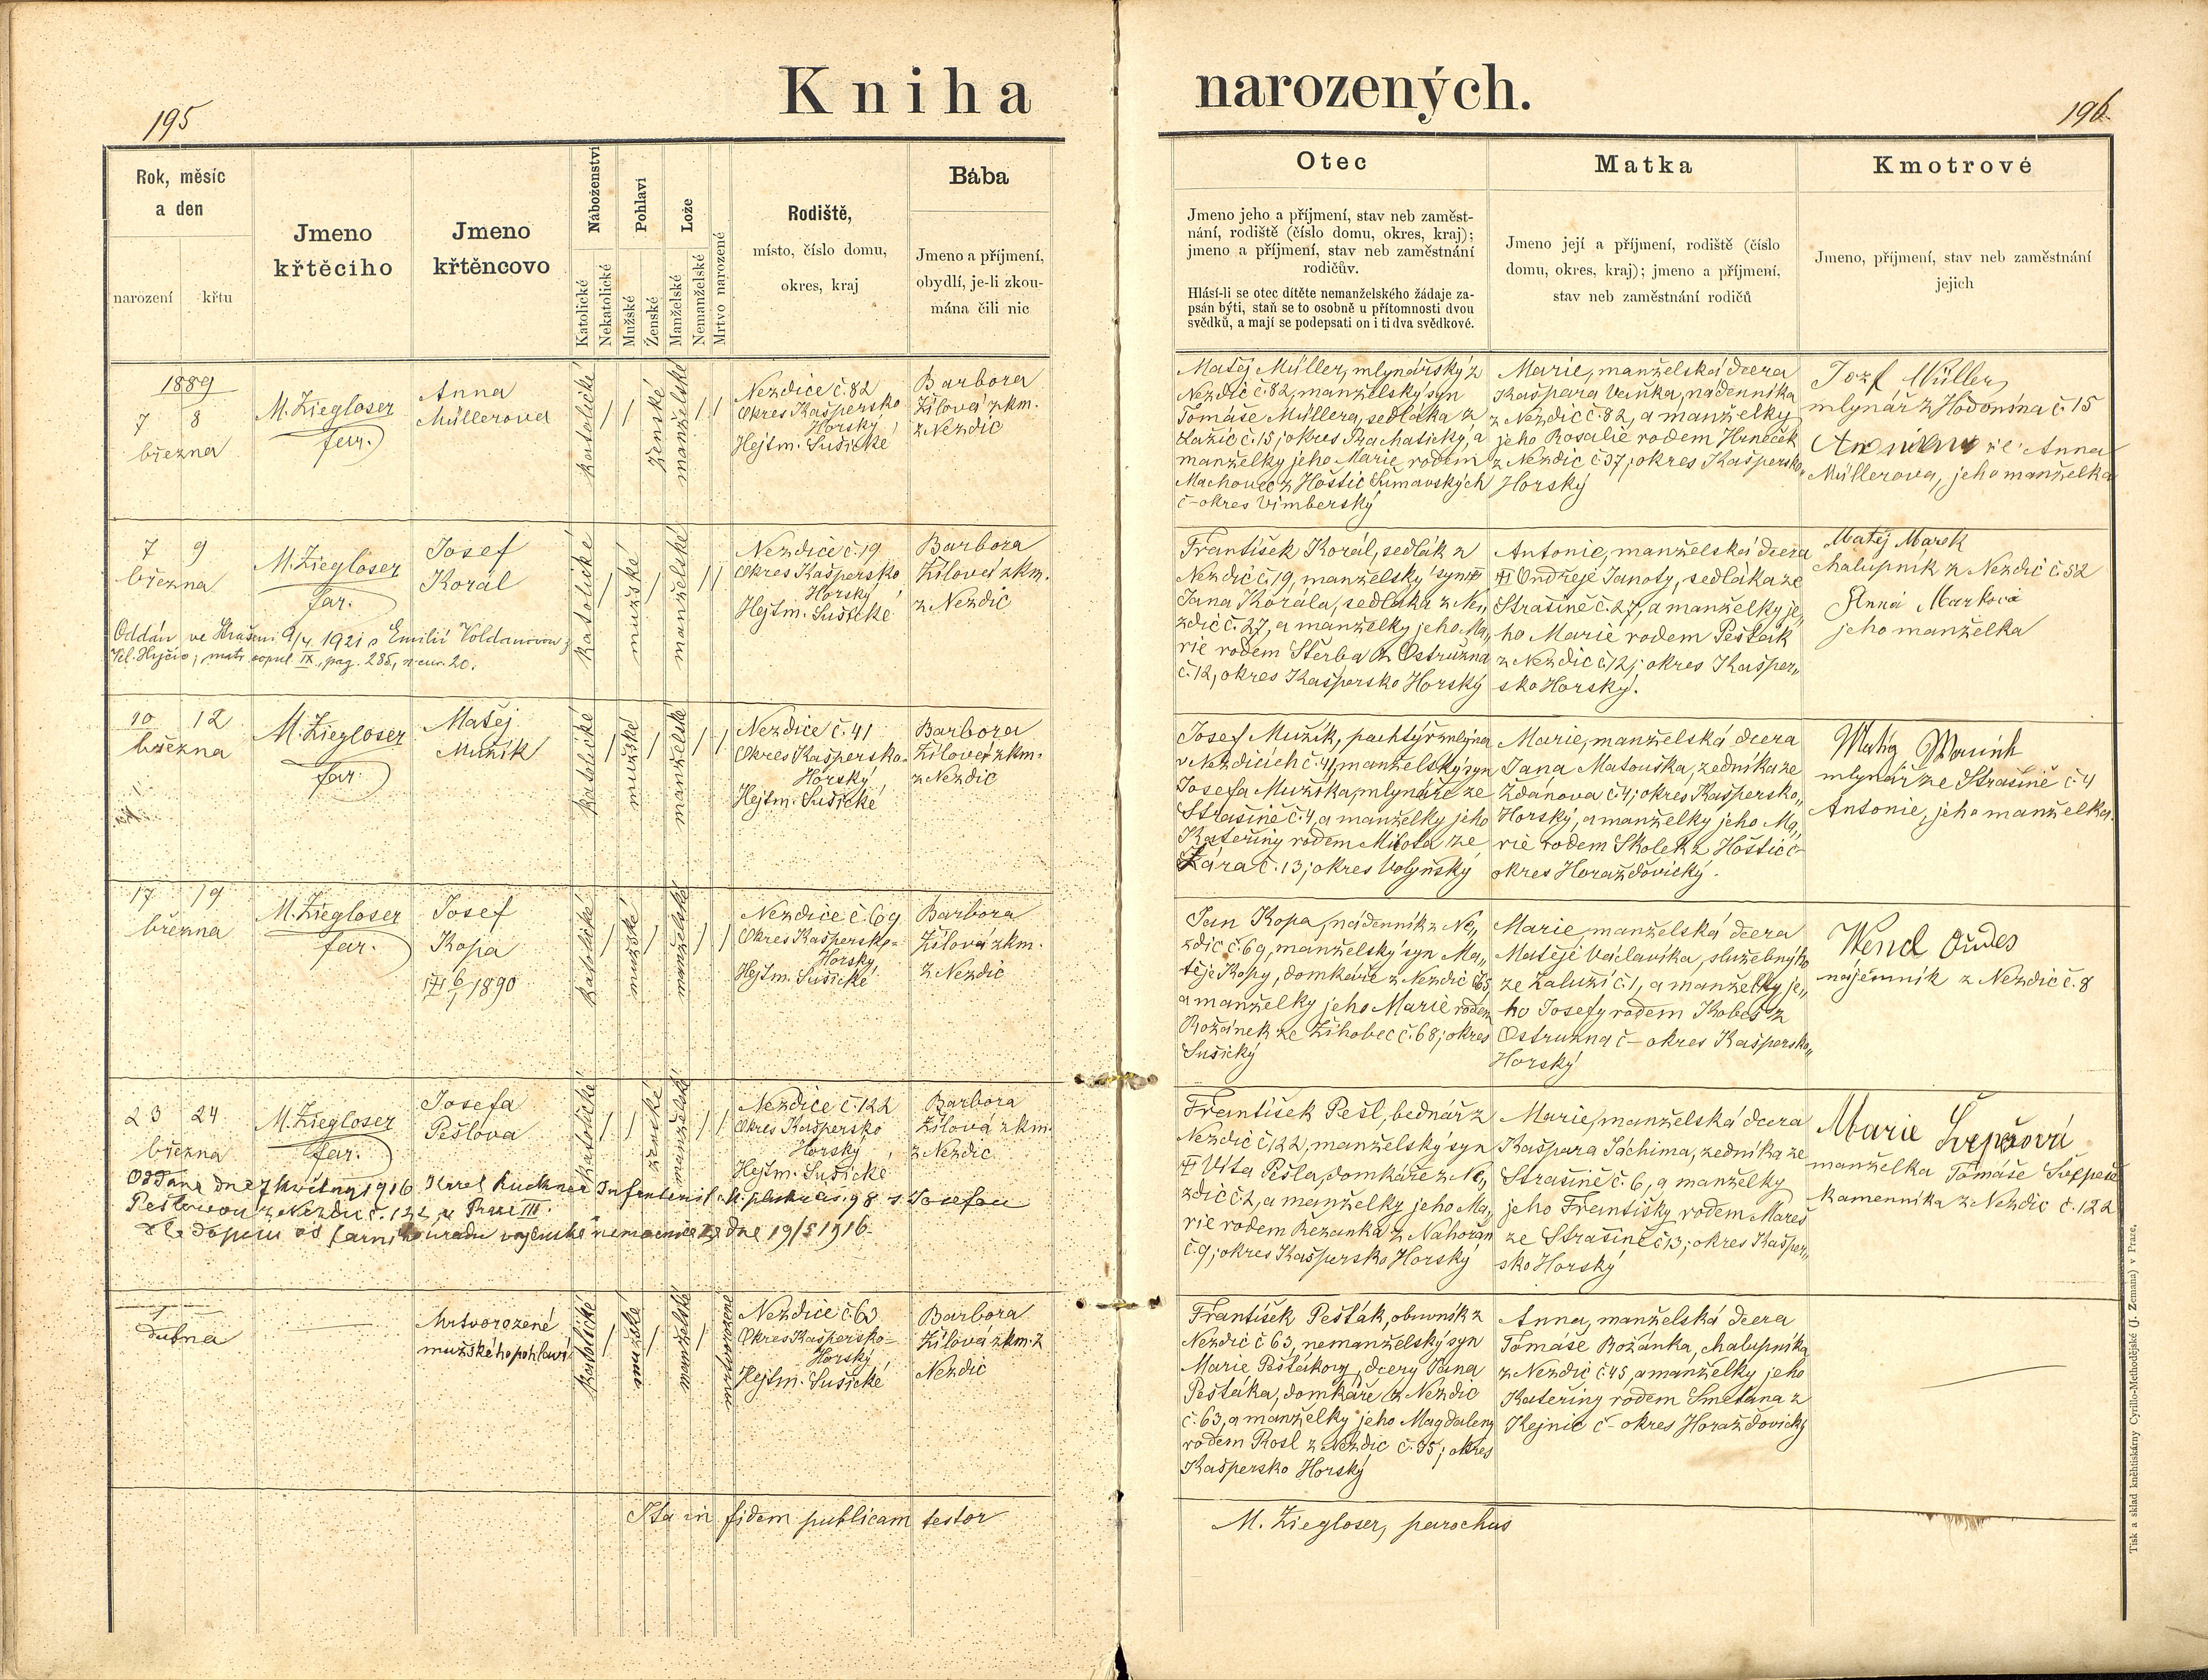 Kniha narozených.
195
196.
Rok, měsíc
a den
narození
křtu
Jmeno
křtěcího
Jmeno
křtěncovo
Náboženství
Katolické
Nekatolické
Pohlaví
Mužské
Ženské
Lože
Manželské
Nemanželské
Mrtvo narozené
Rodiště,
místo, číslo domu,
okres, kraj
Bába
Jmeno a příjmení,
obydlí, je-li zkou-
mána čili nic
Otec
Jmeno jeho a příjmení, stav neb zaměst-
nání, rodiště (číslo domu, okres, kraj);
jmeno a příjmení, stav neb zaměstnání
rodičův.
Hlásí-li se otec dítěte nemanželského žádaje za-
psán býti, staň se to osobně u přítomnosti dvou
svědků, a mají se podepsati on i ti dva svědkové.
Matka
Jmeno její a příjmení, rodiště (číslo
domu, okres, kraj); jmeno a příjmení,
stav neb zaměstnání rodičů
Kmotrové
Jmeno, příjmení, stav neb zaměstnání
jejich
1889
7 8
března
M. Ziegloser
far.
Anna
Müllerova
katolické
ženské
manželské
Nezdice č. 82
Okres Kašpersko
Horský
Hejtm. Sušické
Barbora
Žílová zkm.
z Nezdic
Matěj Müller, mlynářský z
Nezdic č. 82, manželský syn
Tomáše Müllera, sedláka z
Lažic č. 15; okres Prachatický, a
manželky jeho Marie rodem
Machovec z Hoštic Šumavských
č – okres Vimberský
Marie, manželská dcera
Kašpara Vaňka, nádenníka
z Nezdic č. 82, a manželky
jeho Rosalie rodem Hrneček
z Nezdic č 37; okres Kašpersko„
Horský
Jozf Müller,
mlynář z Hodonína č. 15
Anna
Müllerova, jeho manželka
7 9
března
M. Ziegloser
far.
Josef
Korál
katolické
mužské
manželské
Nezdice č. 19
Okres Kašpersko
Horský
Hejtm. Sušické
Barbora
Žílová zkm.
z Nezdic
Oddán ve 9/4 1921 s Emilií Voldanovou z
Vel. Hyčic, matr. copul IX., pag. 285, n. cur. 20.
František Korál, sedlák z
Nezdic č. 19, manželský syn
Jana Korála, sedláka z Ne„
zdic č. 27, a manželky jeho Ma„
rie rodem Štěrba z Ostružna
č. 12, okres Kašpersko Horský
Antonie, manželská dcera
Ondřeje Janoty, sedláka ze
Strašině č. 27, a manželky je„
ho Marie rodem Pešták
z Nezdic č 12; okres Kašper„
sko Horský.
Matěj Marek
chalupník z Nezdic č. 52
Anna Marková
jeho manželka
10 12
března
M. Ziegloser
far.
Matěj
Mužík
katolické
mužské
manželské
Nezdice č. 41
Okres Kašpersko-
Horský
Hejtm. Sušické
Barbora
Žílová zkm.
z Nezdic
Josef Mužík, pachtýř mlýna
v Nezdicích č. 41, manželský syn
Josefa Mužíka, mlynáře ze
Strašině č. 4, a manželky jeho
Kateřiny rodem Milota ze
Ždára č. 13; okres Volyňský
Marie, manželská dcera
Jana Matouška, zedníka ze
Ždanova č. 4; okres Kašpersko„
Horský, a manželky jeho Ma„
rie rodem Skolek z Hoštic č –
okres Horažďovický.
mlynář ze Strašině č. 4
Antonie, jeho manželka.
17 19
března
M. Ziegloser
far.
Josef
Kopa
6/1 1890
katolické
mužské
manželské
Nezdice č. 69
Okres Kašpersko-
Horský
Hejtm. Sušické
Barbora
Žílová zkm.
z Nezdic
Jan Kopa, nádenník z Ne„
zdic č. 69, manželský syn Ma„
těje Kopy, domkáře z Nezdic č 65
a manželky jeho Marie rodem
Božánek ze Žihobec č. 68; okres
Sušický
Marie, manželská dcera
Matěje Václavíka, služebného
ze Zaluží č. 1, a manželky je„
ho Josefy rodem Kobes z
Ostružna č – okres Kašpersko„
Horský
nájemník z Nezdic č. 8
23 24
března
M. Ziegloser
far.
Josefa
Pešlova
katolické
ženské
manželské
Nezdice č. 122
Okres Kašpersko
Horský
Hejtm. Sušické
Barbora
Žílová zkm.
z Nezdic
Oddana dne 7 května 1916 Karel Kuckner
s Josefou
Pešlovou z Nezdic č. 122, v Praze III.
dle dopisu c. k. farního úradu vojenské nemocnice ze dne 19/5 1916.
František Pešl, bednář z
Nezdic č. 122, manželský syn
Víta Pešla, domkáře z Ne„
zdic č. 2, a manželky jeho Ma„
rie rodem Bezanka z Nahořan
č. 9; okres Kašpersko Horský
Marie, manželská dcera
Kašpara Jáchima, zedníka ze
Strašině č. 6, a manželky
jeho Františky rodem Mareš
ze Strašině č 13; okres Kašper„
sko Horský
Marie
manželka Tomáše
kamenníka z Nezdic č. 122
dubna
Mrtvorozené
mužského pohlaví
katolické
mužské
manželské
mrtvorozené
Nezdice č. 63
Okres Kašpersko-
Horský
Hejtm. Sušické
Barbora
Žílová zkm. z
Nezdic
František Pešták, obuvník z
Nezdic č 63, nemanželský syn
Marie Peštákovy, dcery Jana
Peštáka, domkáře z Nezdic
č. 63, a manželky jeho Magdaleny
rodem Rosl z Nezdic č. 35; okres
Kašpersko Horský
Anna, manželská dcera
Tomáše Božánka, chalupníka
z Nezdic č. 45, a manželky jeho
Kateřiny rodem Smetana z
Kejnic č – okres Horažďovický
Ita in fidem publicam testor
M. Ziegloser, parochus
Tisk a sklad knihtiskárny Cyrillo-Methodějské (J. Zeman) v Praze.